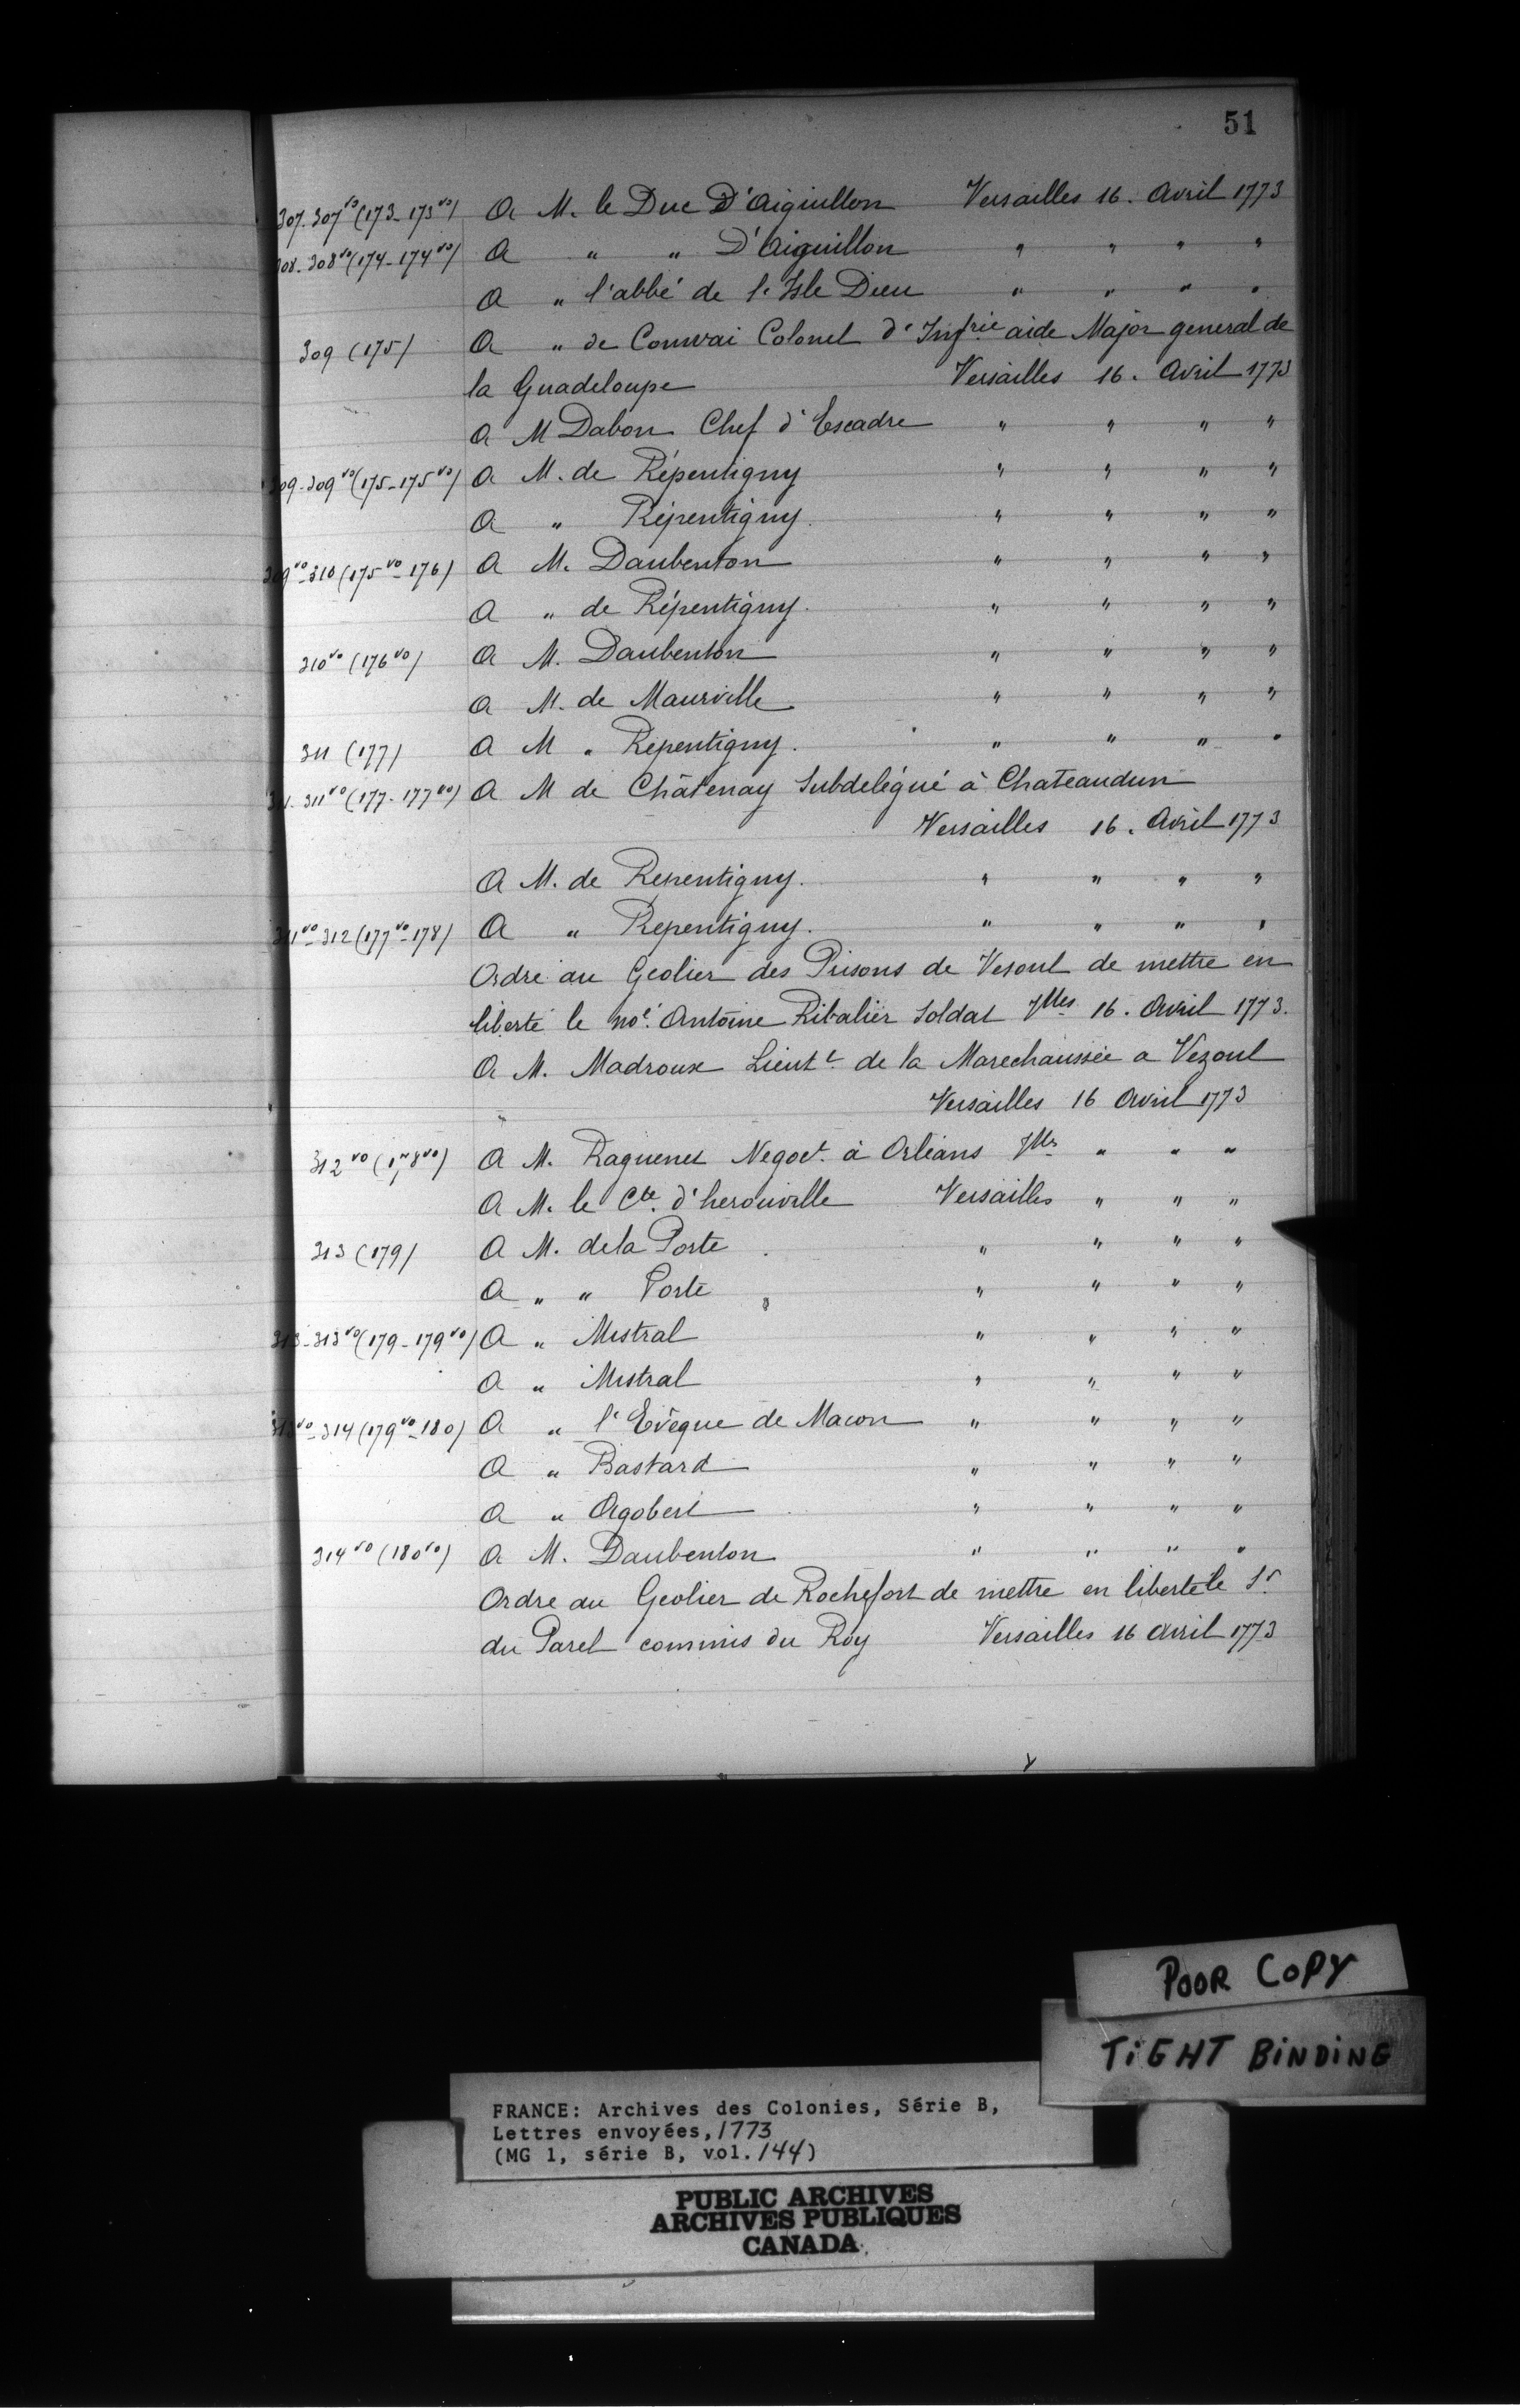 51
307-307vo (173-173vo) A M. le Duc D'Aiguillon Versailles 16. Avril 1773
308-308vo (174-174vo) A " " D'Aiguillon " " " "
A " l'abbé de l'Isle Dieu " " " "
309 (175) A " de Conwai Colonel d'Infrie aide Major general de
la Guadeloupe Versailles 16. Avril 1773
A M Dabon Chef d'Escadre " " " "
309-309vo (175-175vo) A M. de Répentigny " " " "
A " Répentigny. " " " "
309vo-310 (175vo-176) A M. Daubenton " " " "
A " de Répentigny. " " " "
310vo (176vo) A M. Daubenton " " " "
A M. de Maurville " " " "
311 (177) A M " Repentigny. " " " "
311-311vo (177-177vo) A M de Châtenay Subdelégué à Chateaudun
Versailles 16. Avril 1773
A M. de Repentigny. " " " "
311vo-312 (177vo-178) A " Repentigny. " " " "
Ordre au Geolier des Prisons de Vesoul de mettre en
liberté le noé. Antoine Ribalier Soldat Vlles 16. Avril 1773.
A M. Madroux Lieutt. de la Marechaussée a Vezoul
Versailles 16 Avril 1773
312vo (178vo) A M. Raguenet Negoct. à Orléans Vlles " " "
A M. le Cte. d'herouville Versailles " " "
313 (179) A M. de la Porte " " " "
A " " Porte " " " "
313-313vo (179-179vo) A " Mistral " " " "
A " Mistral " " " "
313vo-314 (179vo-180) A " l'Evêque de Macon " " " "
A " Bastard " " " "
A " Agobert " " " "
314vo (180vo) A M. Daubenton " " " "
Ordre au Geolier de Rochefort de mettre en liberté le Sr.
du Parel commis du Roy Versailles 16 avril 1773
POOR COPY
TiGHT BiNDiNG
FRANCE: Archives des Colonies, Série B,
Lettres envoyées, 1773
(MG 1, série B, vol. 144)
PUBLIC ARCHIVES
ARCHIVES PUBLIQUES
CANADA